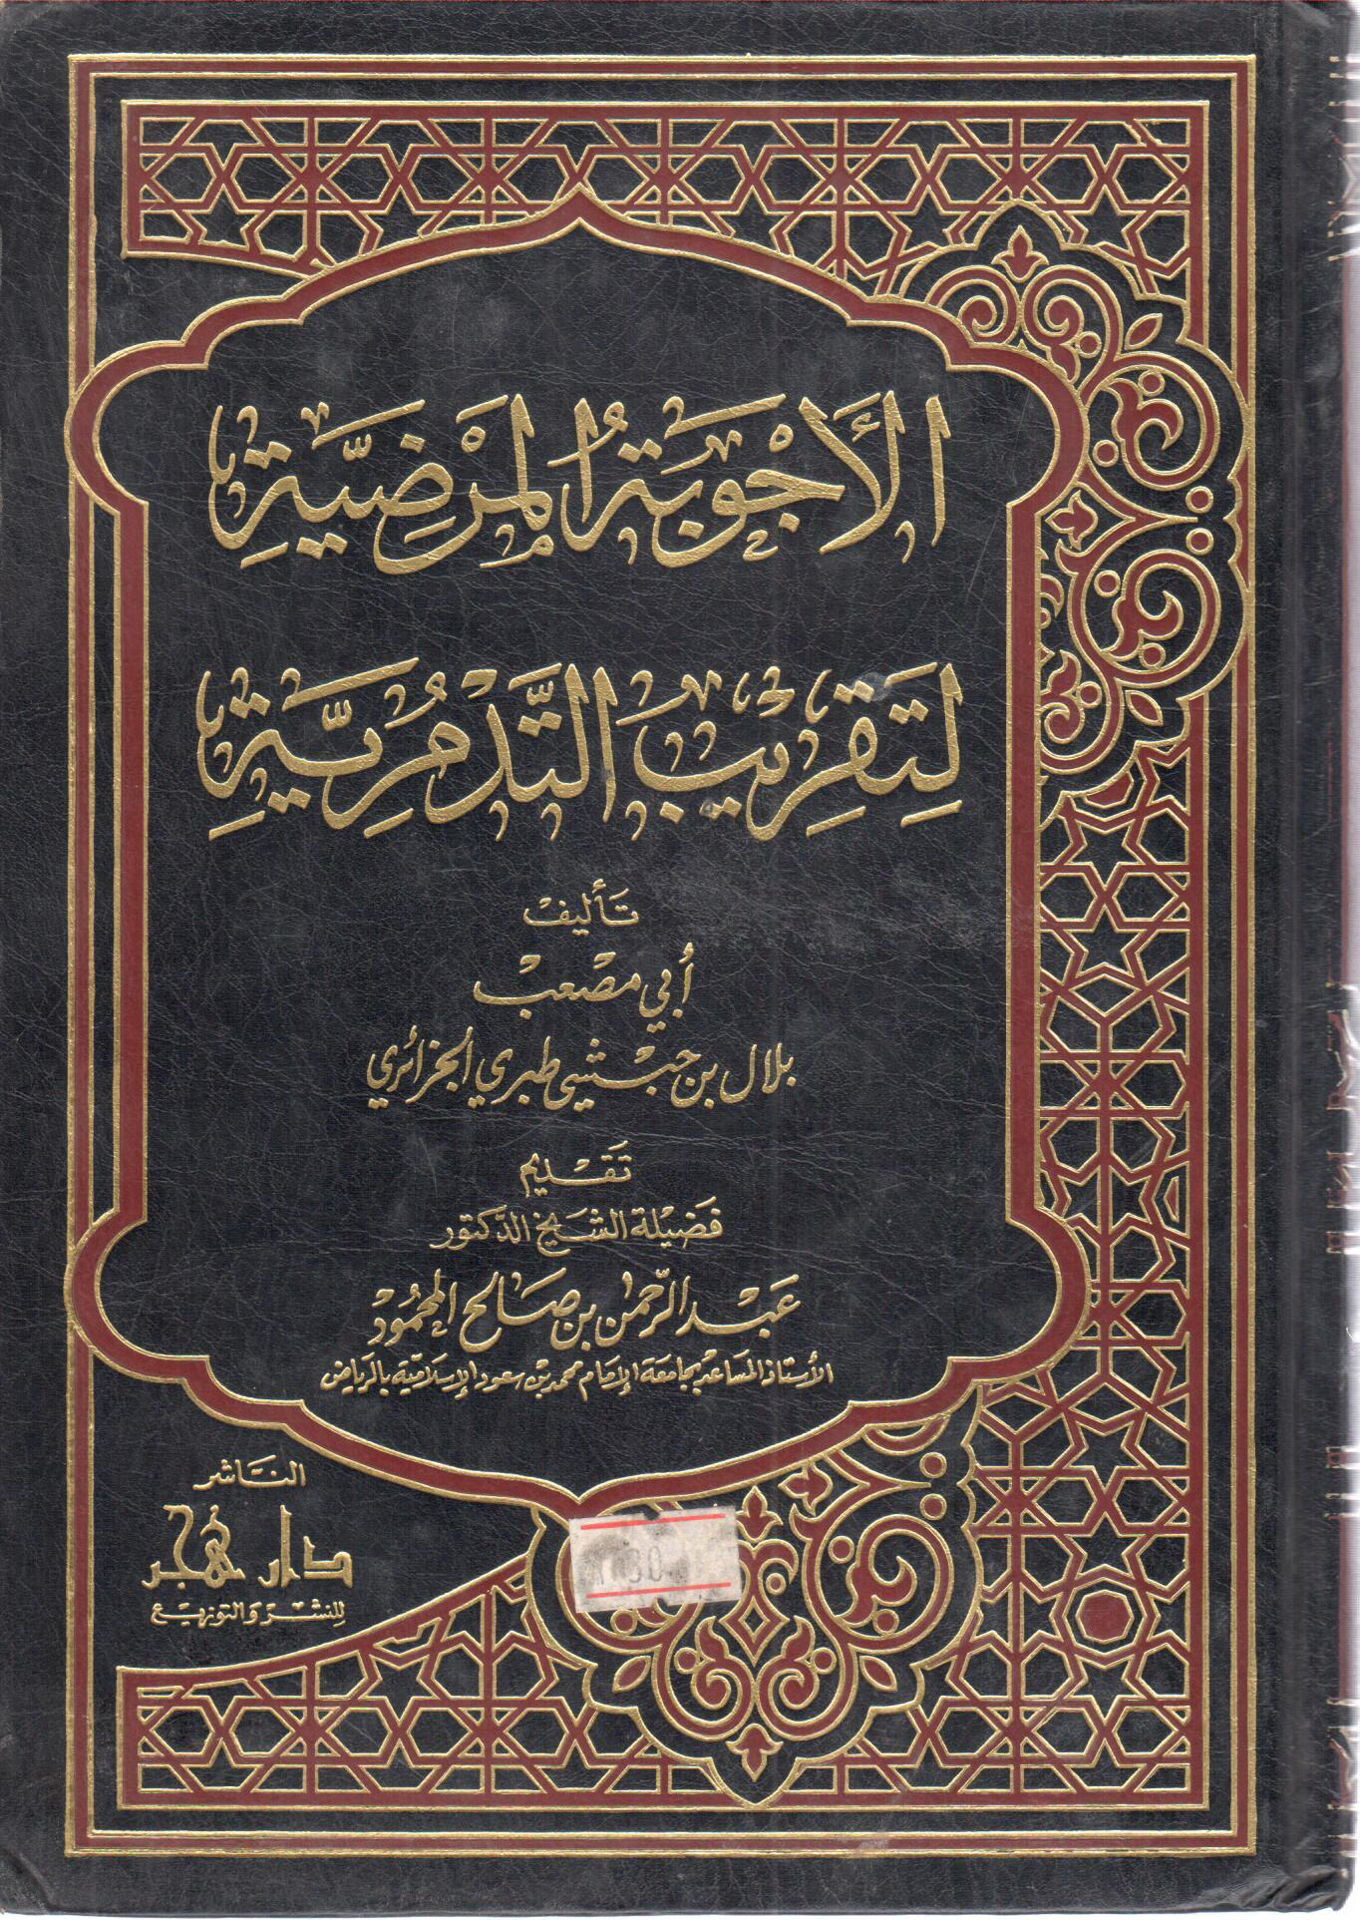 الأَجْوَبَةُ المَرْضِيَّةِ
لِتَقْرِيْبِ التَّدْمُرِيَّةِ
تَأليف
أبي مصعب
بلال بن حبشي طبري الجزائري
تَقديم
فضيلة الشيخ الدكتور
عبد الرحمن بن صالح المحمود
الأستاذ المساعد بجامعة الإمام محمد بن سعود الإسلامية بالرياض
الناشر
دار هجر
للنشر والتوزيع